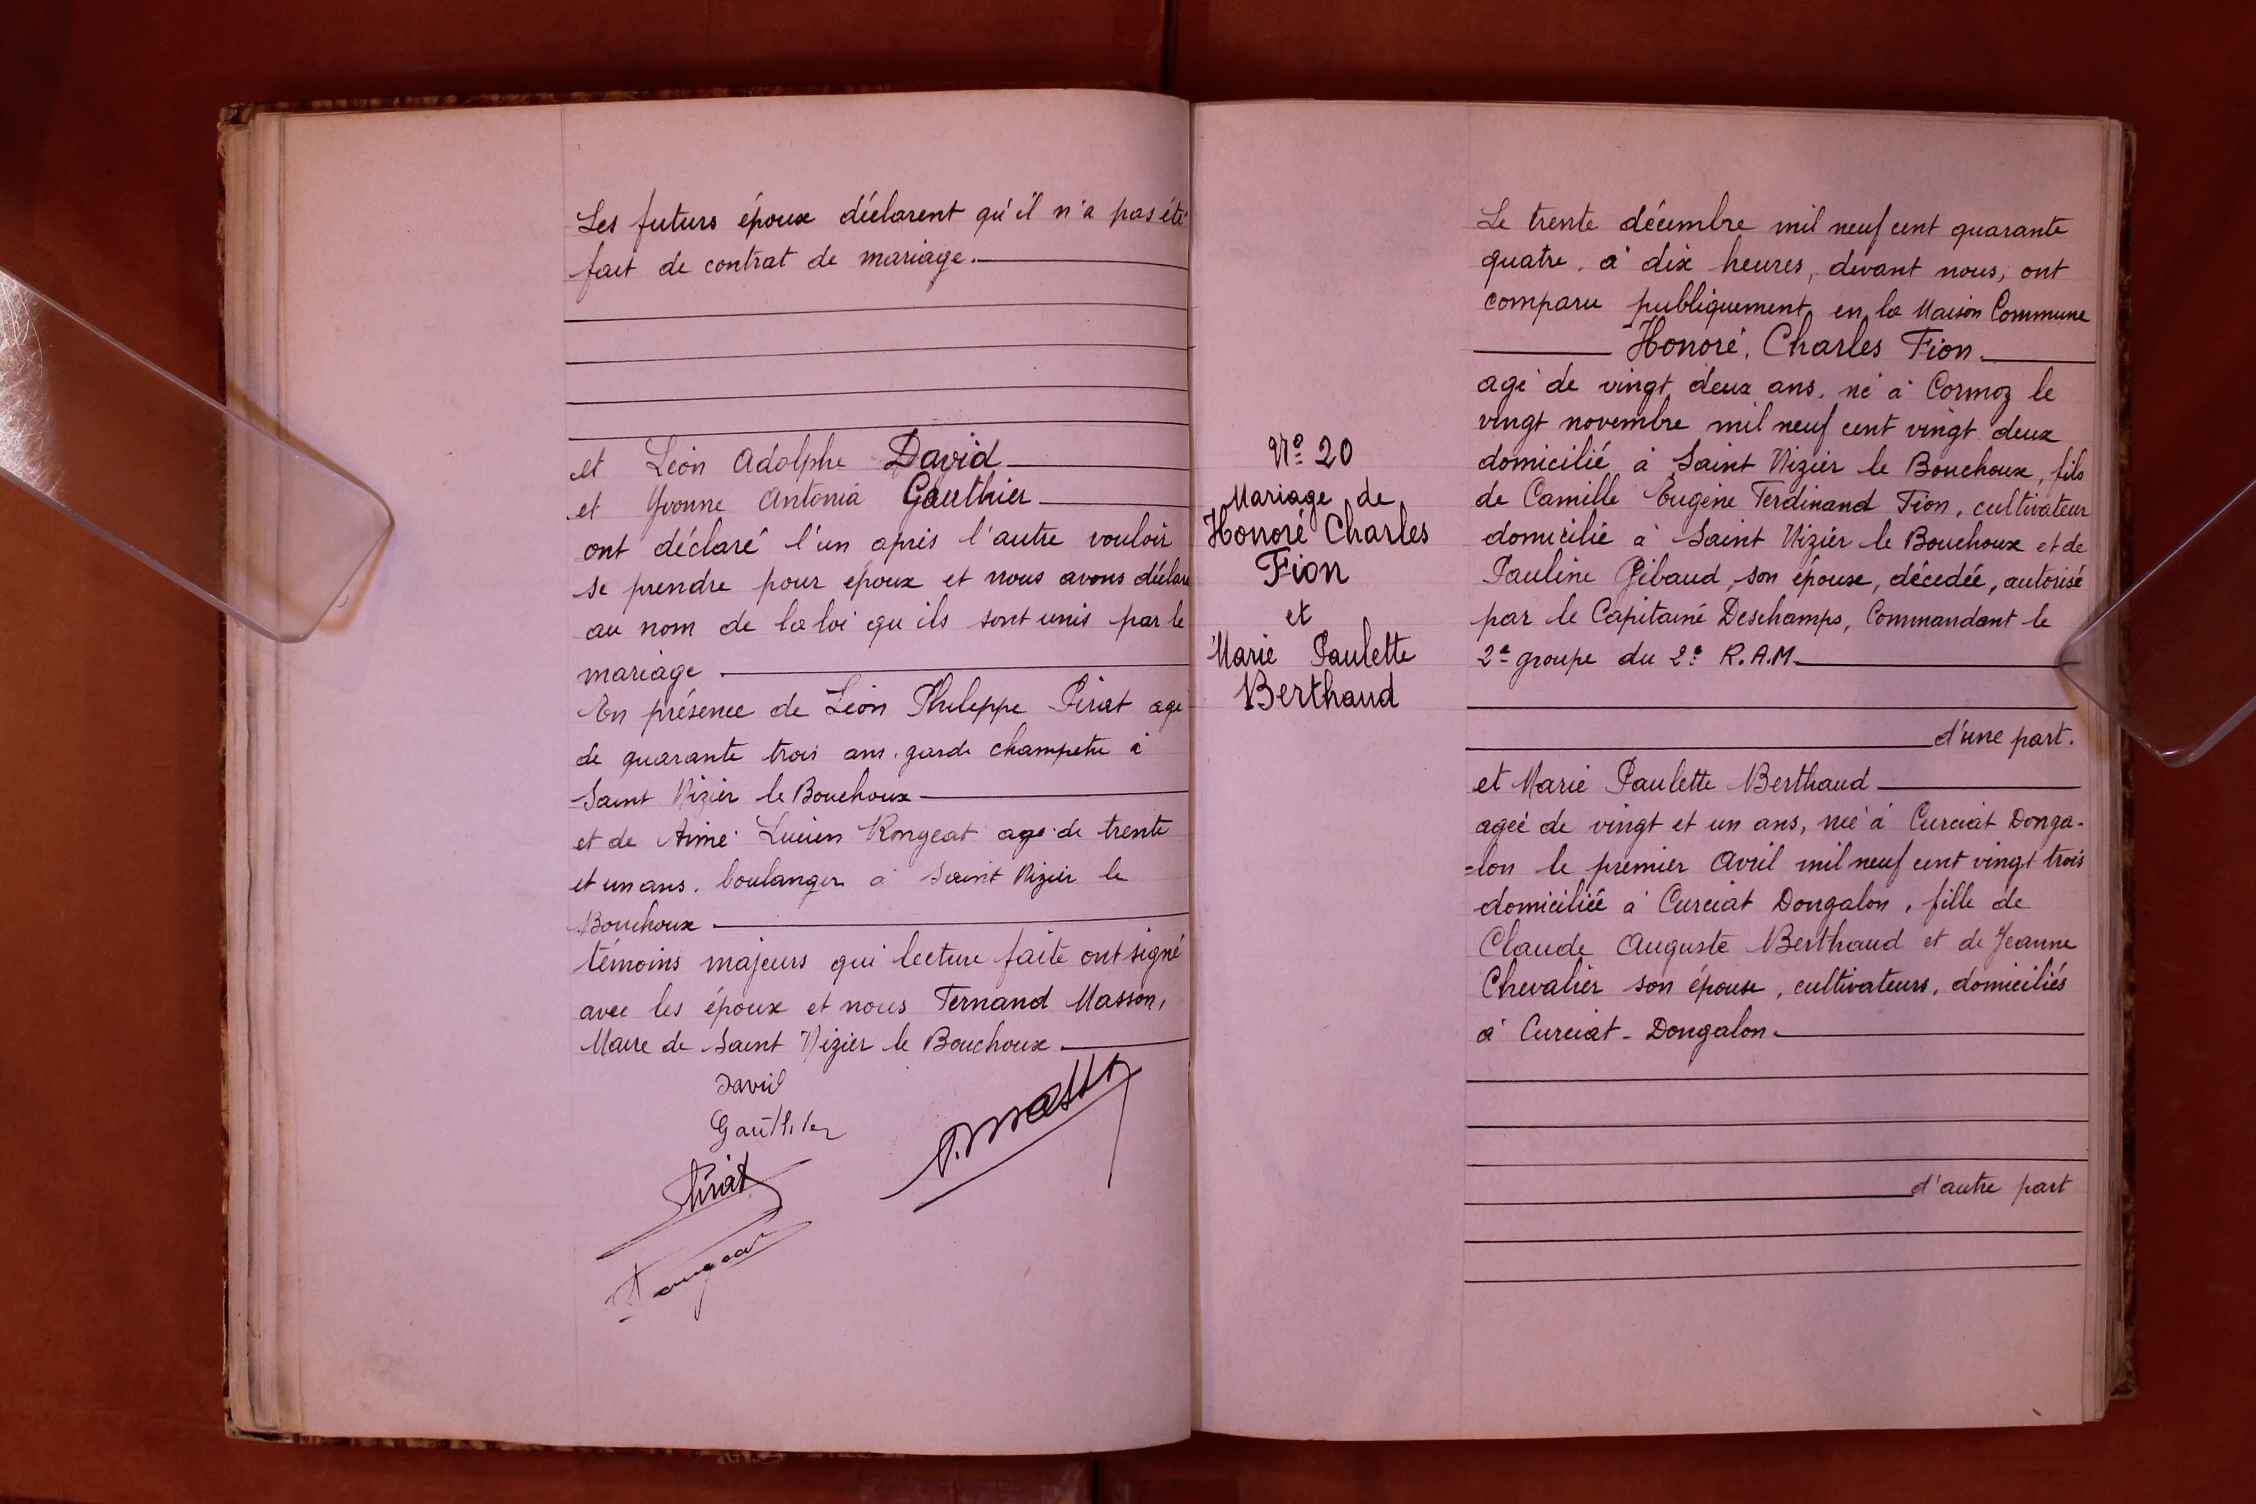 Les futurs époux déclarent qu'il n'a pas été
fait de contrat de mariage.
et Léon Adolphe David
et Yvonne Antonia Gauthier
ont déclaré l'un après l'autre vouloir
se prendre pour époux et nous avons déclaré
au nom de la loi qu'ils sont unis par le
mariage
En présence de Léon Philippe Pirat agé
de quarante trois ans. garde champetre à
Saint Nizier le Bouchoux
et de Aimé Lucien Rongeat agé de trente
et un ans. boulanger à Saint Nizier le
Bouchoux
témoins majeurs qui lecture faite ont signé
avec les époux et nous Fernand Masson,
Maire de Saint Nizier le Bouchoux
David
Gauthier
Pirat
Rongeat
N° 20
Mariage de
Honoré Charles
Fion
et
Marie Paulette
Berthaud
Le trente décembre mil neuf cent quarante
quatre. à dix heures, devant nous, ont
comparu publiquement en la Maison Commune
Honoré, Charles Fion
agé de vingt deux ans. né à Cormoz le
vingt novembre mil neuf cent vingt deux
domicilié à Saint Nizier le Bouchoux, fils
de Camille Eugène Ferdinand Fion, cultivateur
domicilié à Saint Nizier le Bouchoux et de
Pauline Gibaud, son épouse, décédée, autorisé
par le Capitaine Deschamps, Commandant le
2e groupe du 2e R.A.M.
d'une part.
et Marie Paulette Berthaud
agée de vingt et un ans, née à Curciat Donga-
=lon le premier Avril mil neuf cent vingt trois
domiciliée à Curciat Dongalon, fille de
Claude Auguste Berthaud et de Jeanne
Chevalier son épouse, cultivateurs, domiciliés
à Curciat-Dongalon.
d'autre part